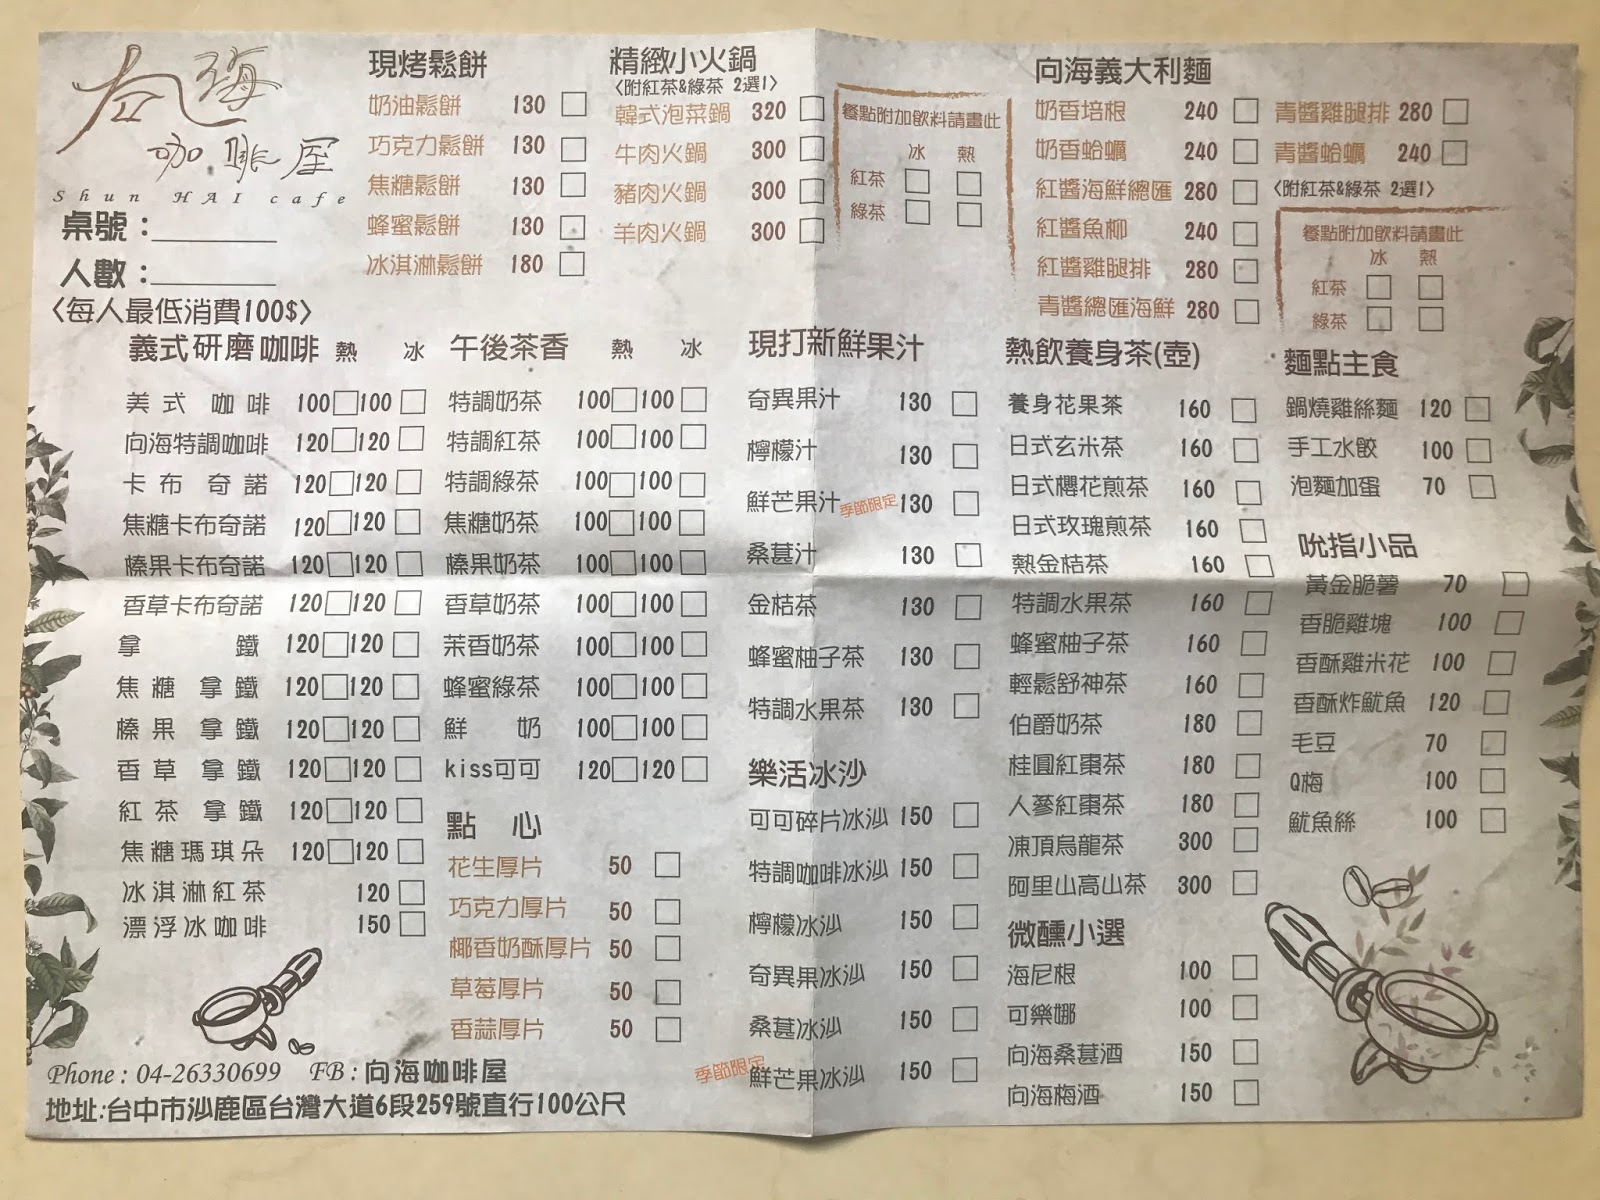 向海
咖啡屋
Shun HAI cafe
桌號：
人數：
〈每人最低消費100$〉
現烤鬆餅
奶油鬆餅 130 □
巧克力鬆餅 130 □
焦糖鬆餅 130 □
蜂蜜鬆餅 130 □
冰淇淋鬆餅 180 □
精緻小火鍋
〈附紅茶&綠茶 2選1〉
韓式泡菜鍋 320 □
牛肉火鍋 300 □
豬肉火鍋 300 □
羊肉火鍋 300 □
餐點附加飲料請畫此
冰 熱
紅茶 □ □
綠茶 □ □
向海義大利麵
奶香培根 240 □
奶香蛤蠣 240 □
紅醬海鮮總匯 280 □
紅醬魚柳 240 □
紅醬雞腿排 280 □
青醬總匯海鮮 280 □
青醬雞腿排 280 □
青醬蛤蠣 240 □
〈附紅茶&綠茶 2選1〉
餐點附加飲料請畫此
冰 熱
紅茶 □ □
綠茶 □ □
義式研磨咖啡 熱 冰
美式咖啡 100□100 □
向海特調咖啡 120□120 □
卡布奇諾 120□120 □
焦糖卡布奇諾 120□120 □
榛果卡布奇諾 120□120 □
香草卡布奇諾 120□120 □
拿鐵 120□120 □
焦糖拿鐵 120□120 □
榛果拿鐵 120□120 □
香草拿鐵 120□120 □
紅茶拿鐵 120□120 □
焦糖瑪琪朵 120□120 □
冰淇淋紅茶 120 □
漂浮冰咖啡 150 □
午後茶香 熱 冰
特調奶茶 100□100 □
特調紅茶 100□100 □
特調綠茶 100□100 □
焦糖奶茶 100□100 □
榛果奶茶 100□100 □
香草奶茶 100□100 □
茉香奶茶 100□100 □
蜂蜜綠茶 100□100 □
鮮奶 100□100 □
kiss可可 120□120 □
點心
花生厚片 50 □
巧克力厚片 50 □
椰香奶酥厚片 50 □
草莓厚片 50 □
香蒜厚片 50 □
現打新鮮果汁
奇異果汁 130 □
檸檬汁 130 □
鮮芒果汁 季節限定 130 □
桑葚汁 130 □
金桔茶 130 □
蜂蜜柚子茶 130 □
特調水果茶 130 □
樂活冰沙
可可碎片冰沙 150 □
特調咖啡冰沙 150 □
檸檬冰沙 150 □
奇異果冰沙 150 □
桑葚冰沙 150 □
季節限定 鮮芒果冰沙 150 □
熱飲養身茶(壺)
養身花果茶 160 □
日式玄米茶 160 □
日式櫻花煎茶 160 □
日式玫瑰煎茶 160 □
熱金桔茶 160 □
特調水果茶 160 □
蜂蜜柚子茶 160 □
輕鬆舒神茶 160 □
伯爵奶茶 180 □
桂圓紅棗茶 180 □
人蔘紅棗茶 180 □
凍頂烏龍茶 300 □
阿里山高山茶 300 □
微醺小選
海尼根 100 □
可樂娜 100 □
向海桑葚酒 150 □
向海梅酒 150 □
麵點主食
鍋燒雞絲麵 120 □
手工水餃 100 □
泡麵加蛋 70 □
吮指小品
黃金脆薯 70 □
香脆雞塊 100 □
香酥雞米花 100 □
香酥炸魷魚 120 □
毛豆 70 □
Q梅 100 □
魷魚絲 100 □
Phone : 04-26330699 FB : 向海咖啡屋
地址:台中市沙鹿區台灣大道6段259號直行100公尺